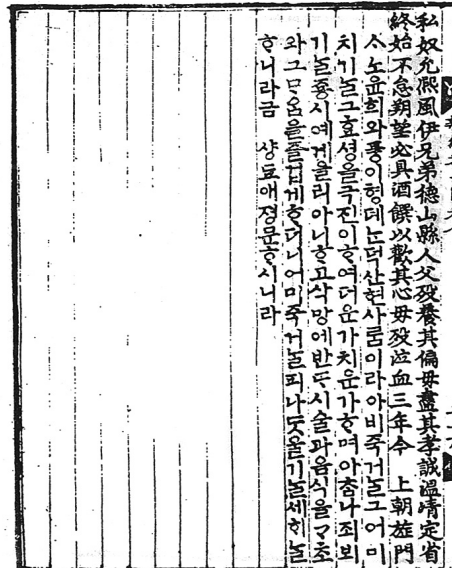 私奴允凞風伊兄弟德山縣人父歿養其偏母盡其孝誠溫凊定省
終始不怠朔望必具酒饌以歡其心母歿泣血三年今 上朝旌門
ᄉᆞ노윤희와풍이형뎨ᄂᆞᆫ덕산현사ᄅᆞᆷ이라아비죽거ᄂᆞᆯ그어미
치기ᄂᆞᆯ그효셩을극진이ᄒᆞ여더운가치운가ᄒᆞ며아ᄎᆞᆷ나죄뵈
기ᄂᆞᆯ죵시예게을리아니ᄒᆞ고삭망에반ᄃᆞ시술과음식을ᄀᆞ초
와그ᄆᆞᄋᆞᆷ을즐겁게ᄒᆞ더니어미죽거ᄂᆞᆯ피나ᄃᆞᆺ울기ᄂᆞᆯ세ᄒᆡᄂᆞᆯ
ᄒᆞ니라금 샹됴애졍문ᄒᆞ시니라